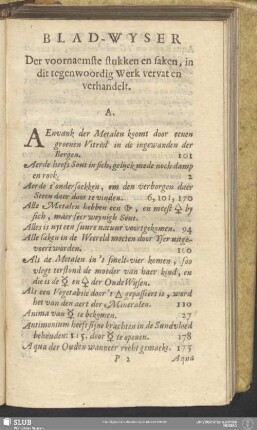 BLAD-WYSER
Der voornaemste stukken en saken, in
dit tegenwoordig Werk vervat en
verhandelt.
A.
AEnvank der Metalen kyomt door eenen
groenen Vitreol in de ingewanden der
Bergen. 101
Aerde heeft Sout in sich, gelijck mede noch damp
en rock. 2
Aerde t'ondersoekken, om den verborgen
Steen daer door te vinden. 6, 101, 170
Alle Metalen hebben een 🜨, en meest 🜍 by
sich, maer seer weynigh Sout.
Alles is uyt een suure natuur voortgekomen. 94
Alle saken in de Weereld moeten door Yser uitge-
voert worden. 160
Als de Metalen in 't smelt-vier komen, soo
vlogt terstond de moeder van haer kind, en
die is de ☿ en 🜍 der Oude Wysen.
Als een Vegetabile door 't 🜂 gepasseert is, word
het van den aert der Mineralen. 110
Anima van ☿ te bekomen. 27
Antimonium heeft sijne krachten in de Sundvloed
behouden: 115. door ☿ te openen. 178
Aqua der Ouden wanneer recht gemackt. 175
P 2 Aqua
SLUB